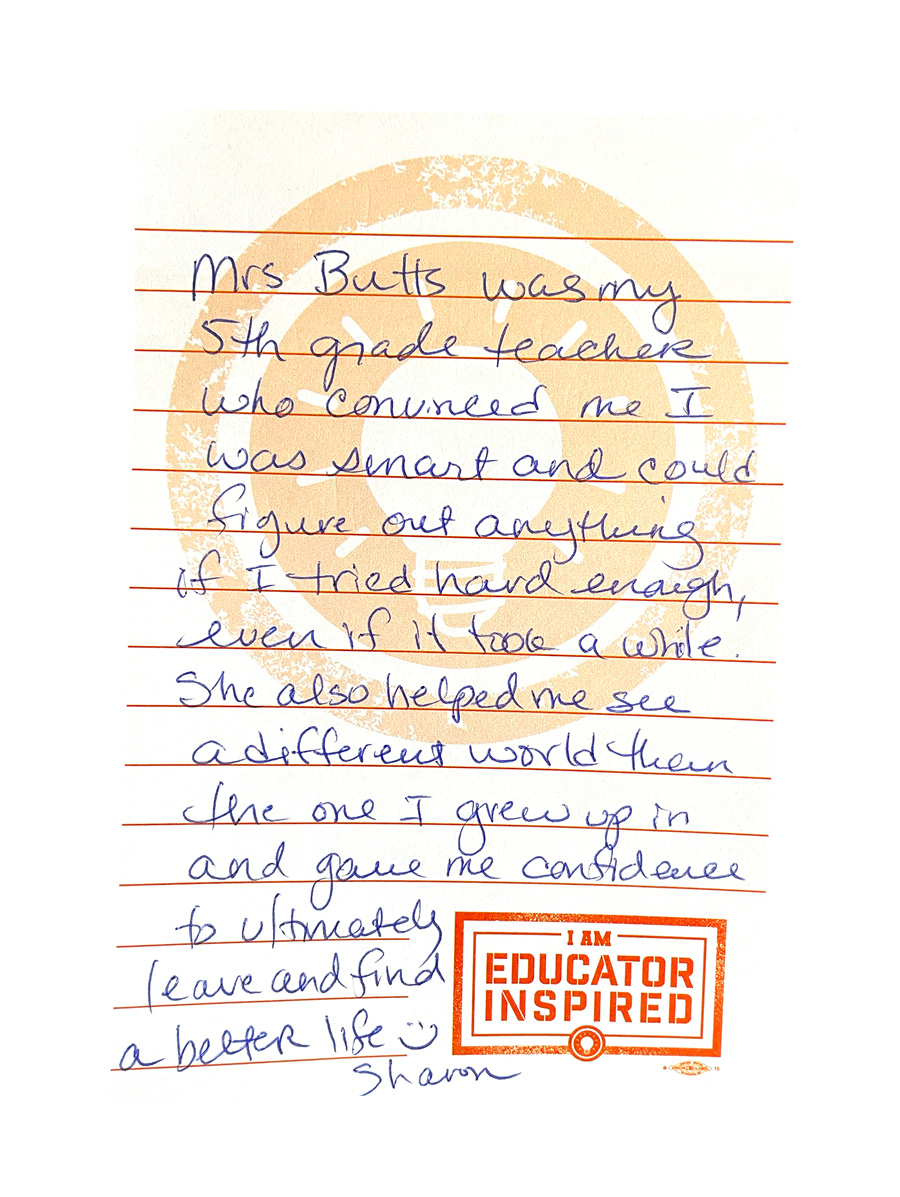 Mrs Butts was my
5th grade teacher
who convinced me I
was smart and could
figure out anything
if I tried hard enough,
even if it took a while.
She also helped me see
a different world than
the one I grew up in
and gave me confidence
to ultimately
leave and find
a better life
Sharon
I AM
EDUCATOR
INSPIRED